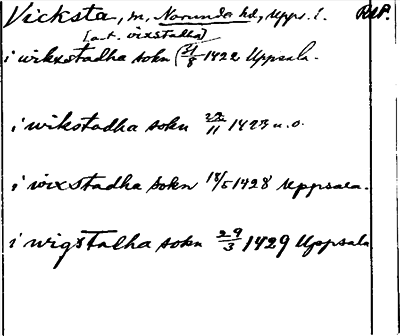 Vicksta, sn, Norunda hd, Upps. l. RAP.
[a.t. vixstadha]
i wikxstadha sokn (31/8 1422 Uppsala.
i wikstadha sokn 22/11 1423 u.o.
i wixstadha sokn 18/5 1428 Uppsala.
i wigstadha sokn 29/3 1429 Uppsala